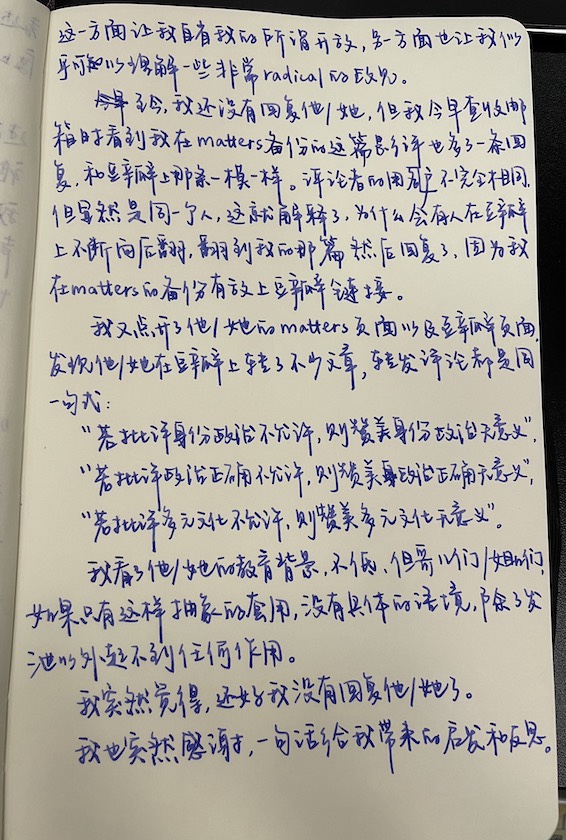 这一方面让我自省我的所谓开放,另一方面也让我似
乎可以理解一些非常radical的政见。
至今,我还没有回复他/她,但我今早查收邮
箱时看到我在matters备份的这篇影评也多了一条回
复,和豆瓣上那条一模一样。评论者的用户不完全相同,
但显然是同一个人,这就解释了,为什么会有人在豆瓣
上不断向后翻,翻到我的那篇然后回复了,因为我
在matters的备份有放上豆瓣链接。
我又点开了他/她的matters页面以及豆瓣页面,
发现他/她在豆瓣上转了不少文章,转发评论都是同
一句式:
“若批评身份政治不允许,则赞美身份政治无意义”,
“若批评政治正确不允许,则赞美政治正确无意义”,
“若批评多元文化不允许,则赞美多元文化无意义”。
我看了他/她的教育背景,不低,但哥儿们/姐们,
如果只有这样抽象的套用,没有具体的语境,除了发
泄以外起不到任何作用。
我突然觉得,还好我没有回复他/她了。
我也突然感谢,一句话给我带来的启发和反思。